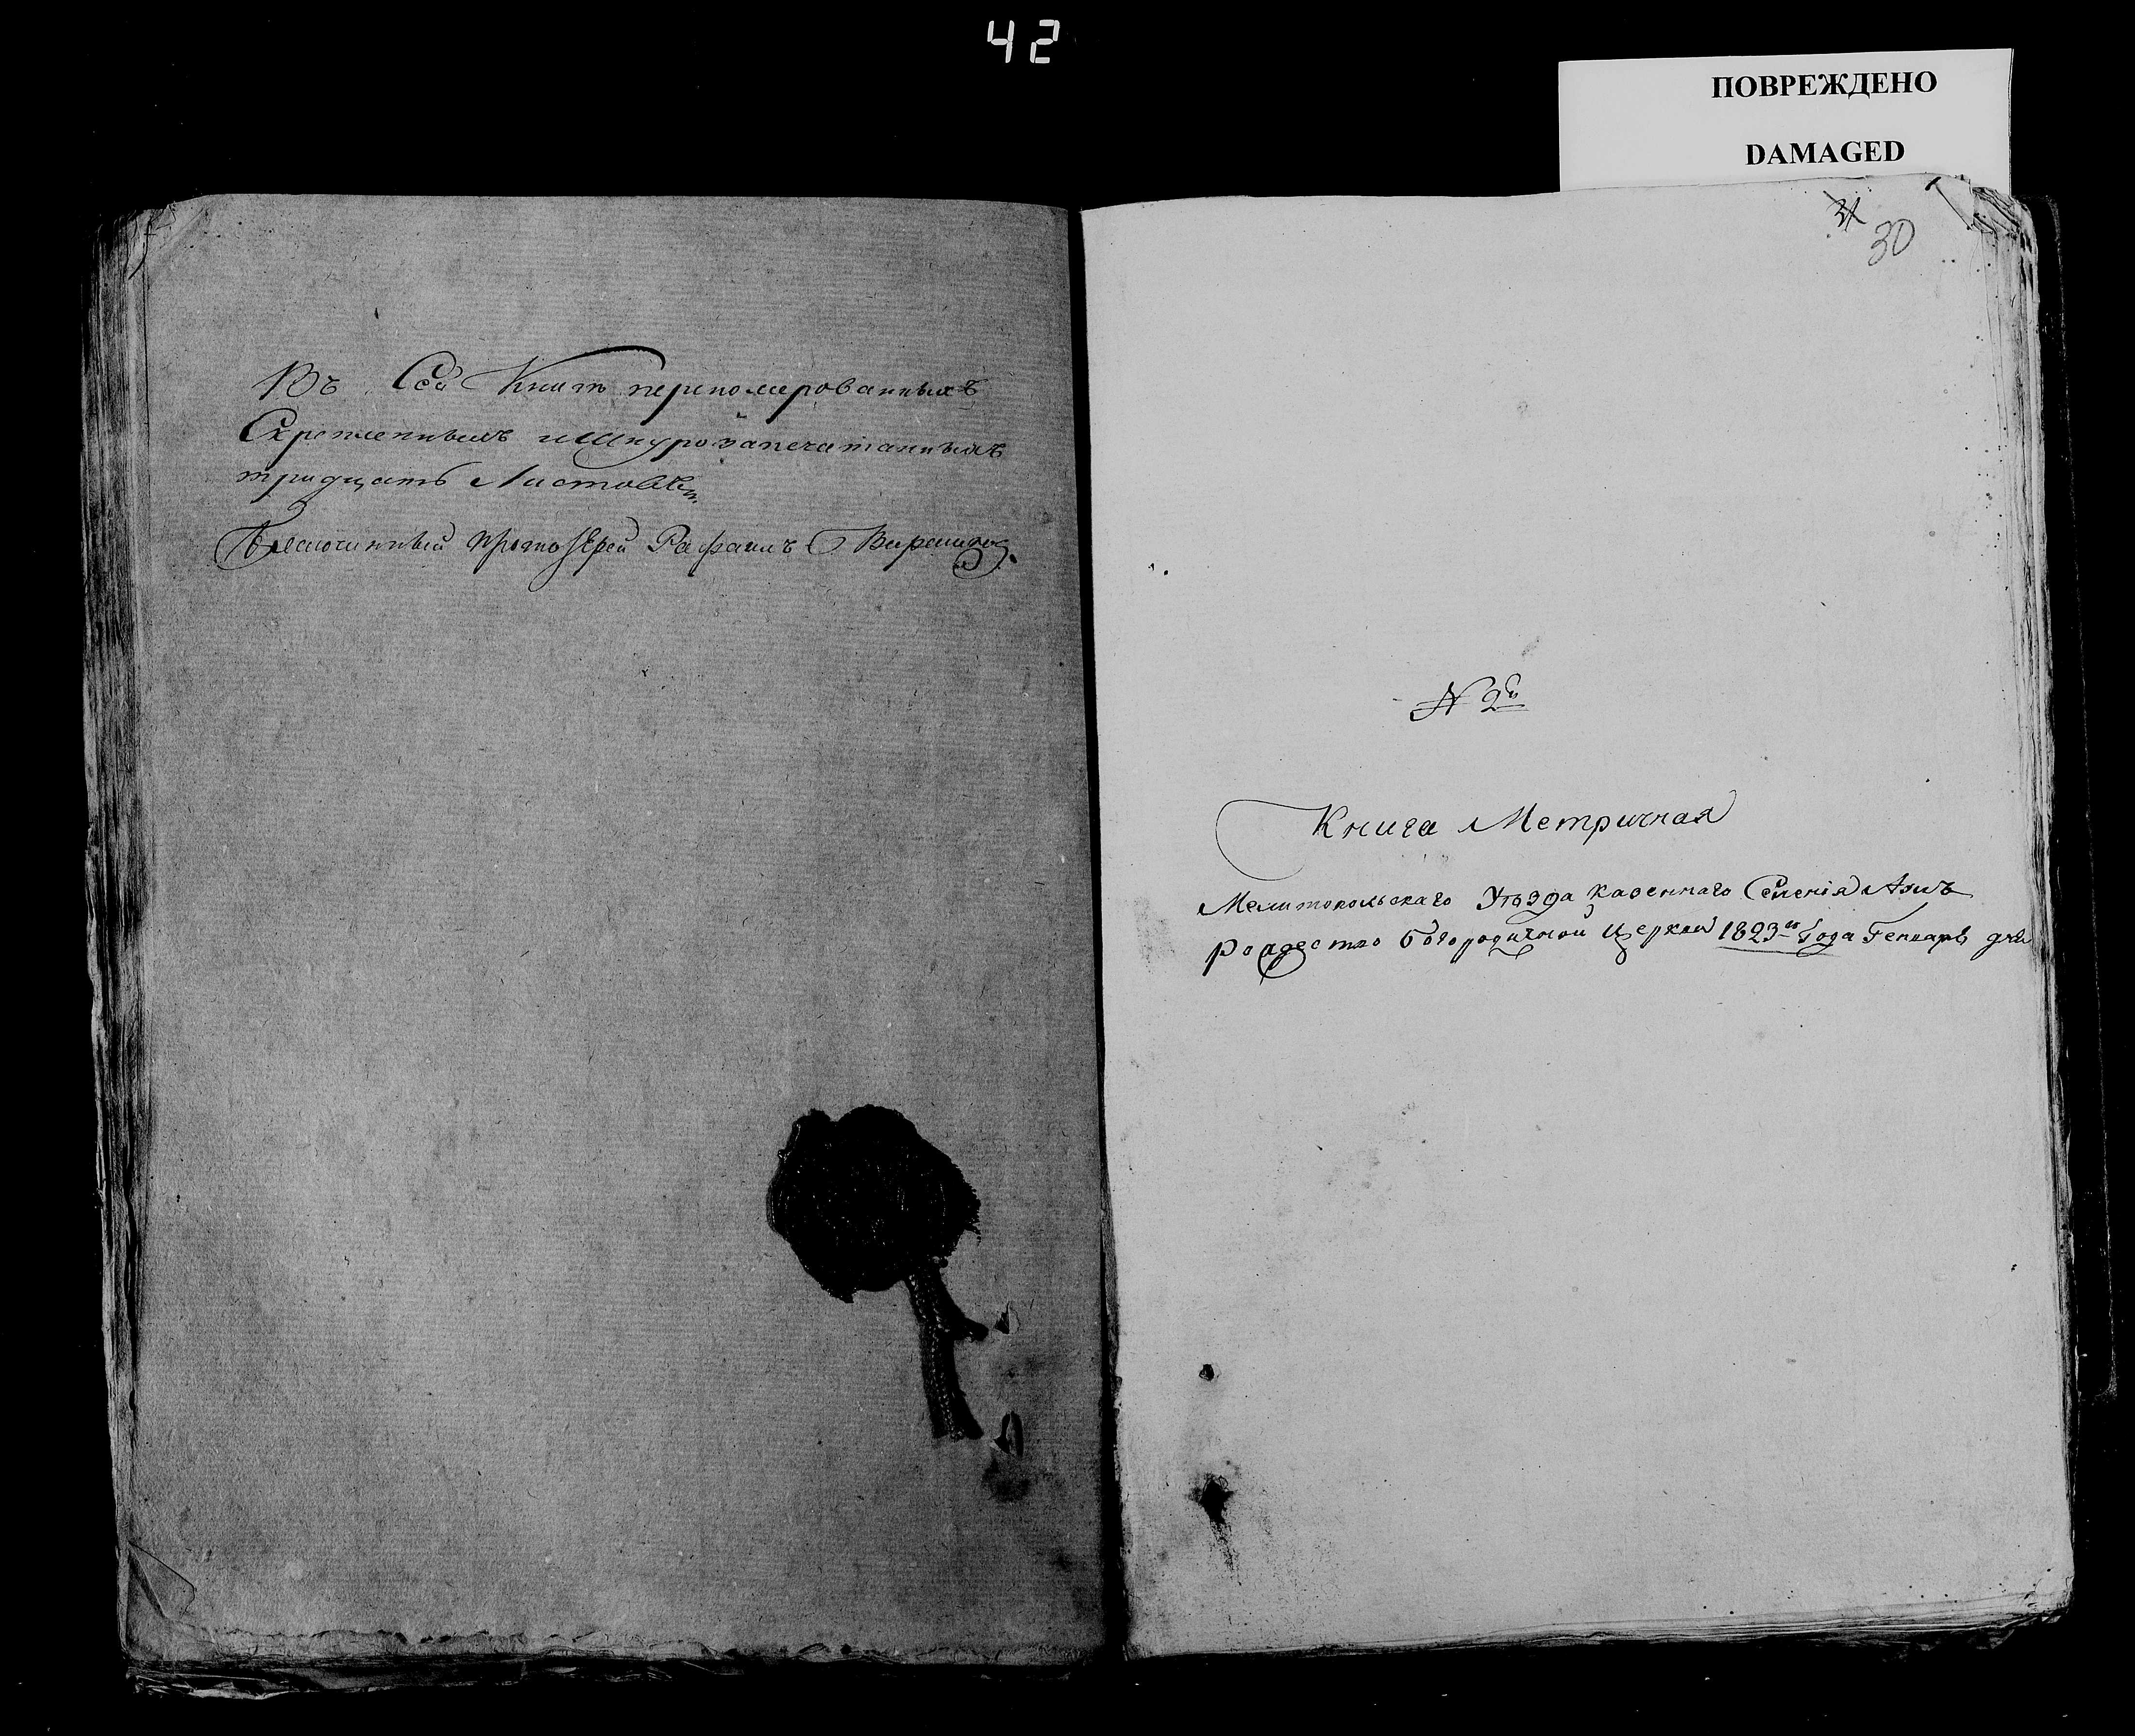 42
ПОВРЕЖДЕНО
DAMAGED
31
30
Въ Сей Книги перномерованныхъ
Скрепленныхъ и Шнурозапечатанныхъ
тридцать Листовъ
Благочинный Протоіерей Рафаилъ
№ 2й
Книга Метричная
Мелитопольскаго Уѣзда казеннаго Селенія
Рождество Богородичной Церкви 1823го Года Генваря дня